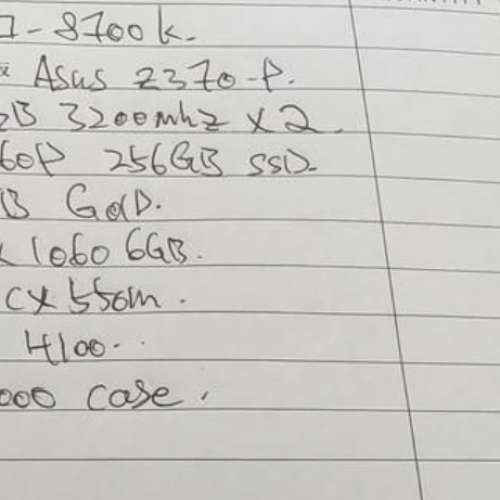 7-8700k.
板 Asus Z370-P.
GB 3200mhz x 2.
60P 256GB SSD.
B GOLD.
x 1060 6GB.
CX 550m.
4100.
000 case.